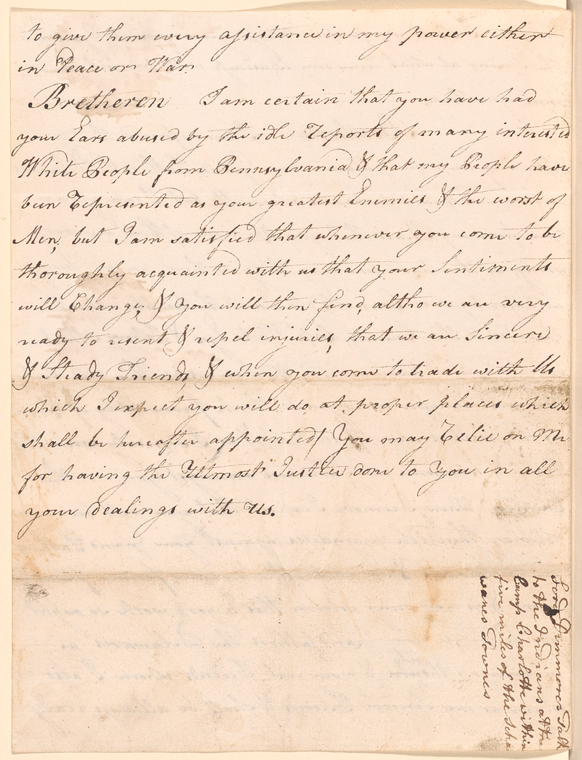 to give them every assistance in my power either
in Peace or War.
Bretheren I am certain that you have had
your Ears abused by the idle Reports of many interested
White People from Pennsylvania & that my People have
been Represented as your greatest Enemies & the worst of
Men, but I am satisfied that whenever you come to be
thoroughly acquainted with us that your Sentiments
will Change, & you will then find, altho we are very
ready to resent & repel injuries, that we are Sincere
& Steady Friends & when you come to trade with Us
which I expect you will do at proper places which
shall be hereafter appointed/ You may Relie on Me
for having the Utmost Justice done to You in all
your dealings with Us.
Lord Dunmores Talk
to the Indians at the
Camp Charlotte within
five miles of the Scha
wanes Townes